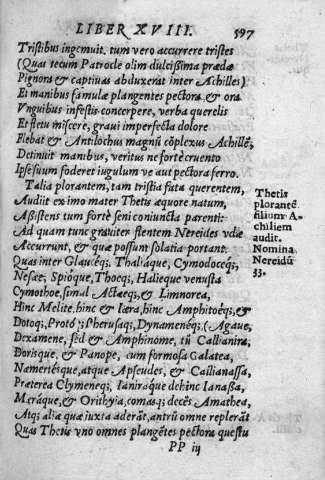 LIBER XVIII. 597
Tristibus ingemuit. tum vero accurrere tristes
(Quas tecum Patrocle olim dulcißima prædæ
Pignora & captivas abduxerat inter Achilles)
Et manibus famulæ plangentes pectora & ora
Vnguibus infestis concerpere, verba querelis
Et fletu miscere, gravi imperfecta dolore
Flebat & Antilochus magnū cōplexus Achillē,
Detinuit manibus, veritus ne forte cruento
Ipse suum foderet iugulum ve aut pectora ferro.
Talia plorantem, tam tristia fata querentem,
Audiit ex imo mater Thetis æquore natum,
Aßistens tum fortè seni coniuncta parenti:
Ad quam tunc gratiter flentem Nereides vdæ
Accurrunt, & quæ possunt solatia portant.
Quas inter Glaucēq;, Thaliaque, Cymodoceq;,
Nesæe; Spioque, Thoeq;, Halieque venusta
Cymothoe, simul Actæeq;, & Limnorea,
Hinc Melite, hinc & Iæra, hinc Amphitoēq;, &
Dotoq;, Proto q; Pherusaq;, Dynameneq;, (Agaue,
Dexamene, sed & Amphinome, tū Callianira,
Dorisque, & Panope, cum formosa Galatea,
Namertesque, atque Apseudes, & Callianassa,
Præterea Clymeneq;, Ianiraque dehinc Ianaßa,
Meraque, & Orithyia, comas q; decēs Amathea,
Atq; aliæ quæ iuxta aderāt, antrū omne replerāt
Quas Thetis vno omnes plangētes pectora questu
PP iij
Thetis
plorantē
filium A-
chillem
audit.
Nomina
Nereidū
33.